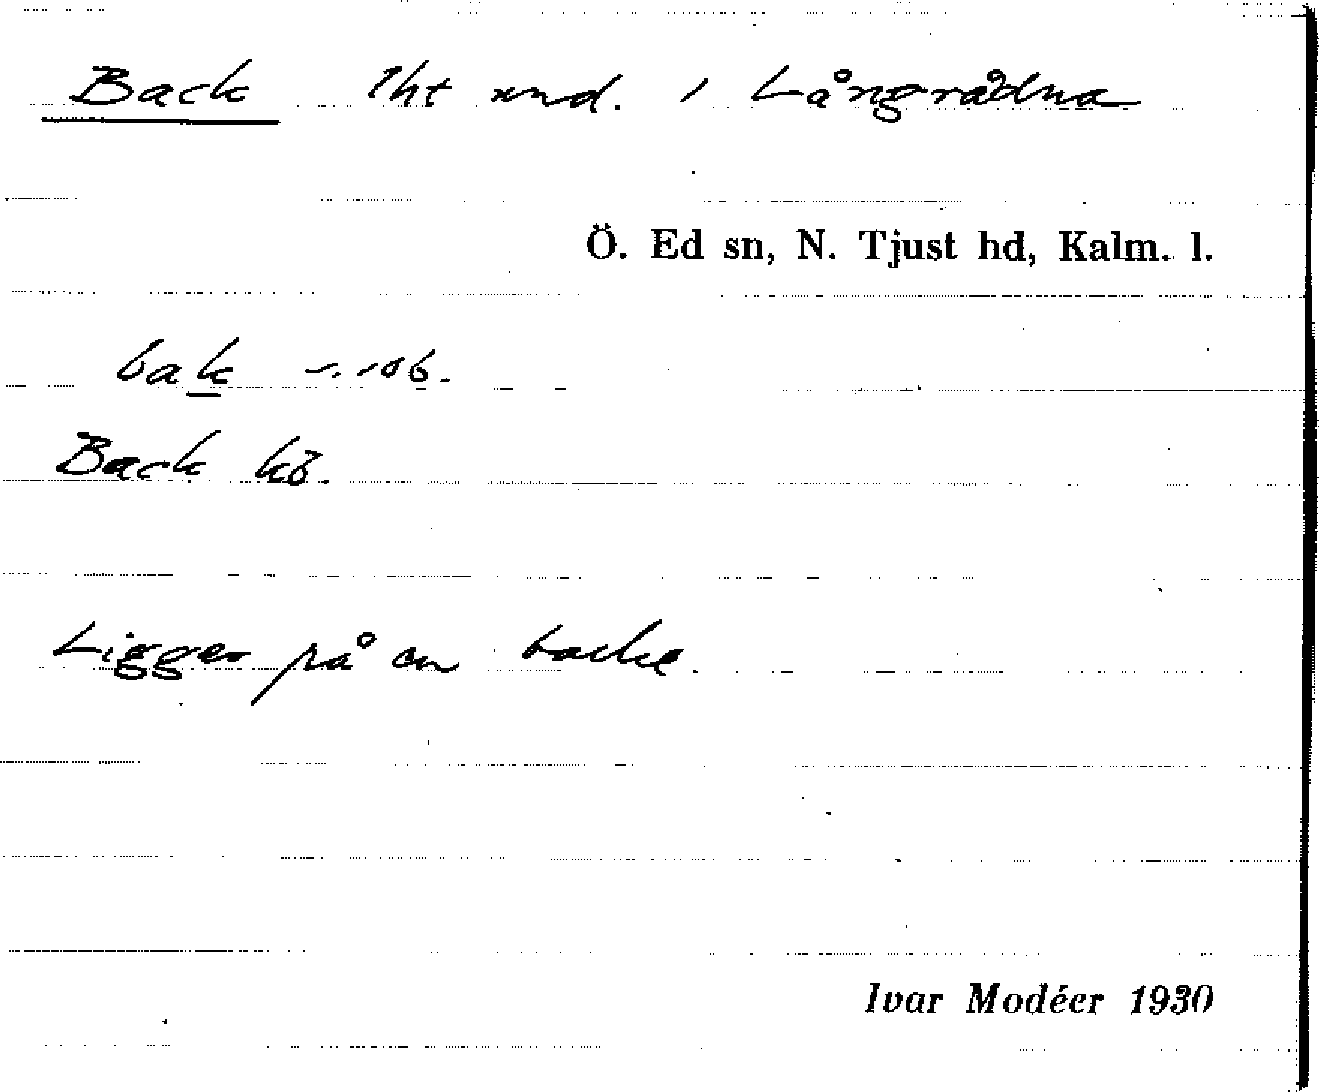 Back lht und. i Långrådna
Ö. Ed sn, N. Tjust hd, Kalm. l.
bak
Back kö.
Ligger på en backe.
Ivar Modéer 1930